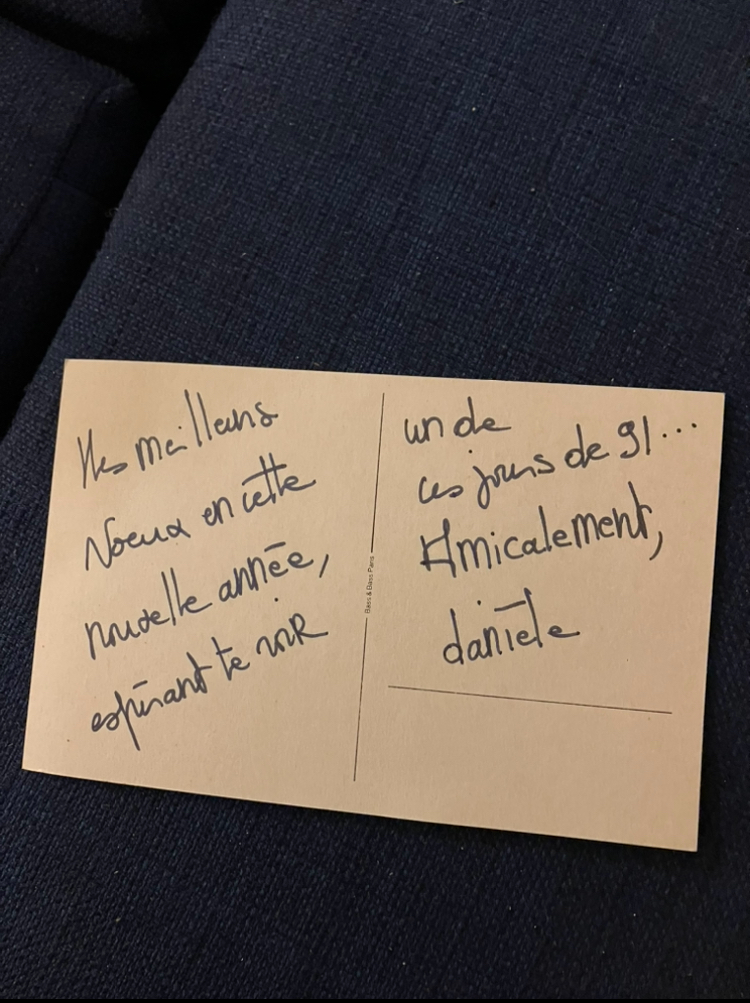 Mes meilleurs
Voeux en cette
nouvelle année,
espérant te voir
Bass & Bass Paris
un de
ces jours de 91...
Amicalement,
danièle